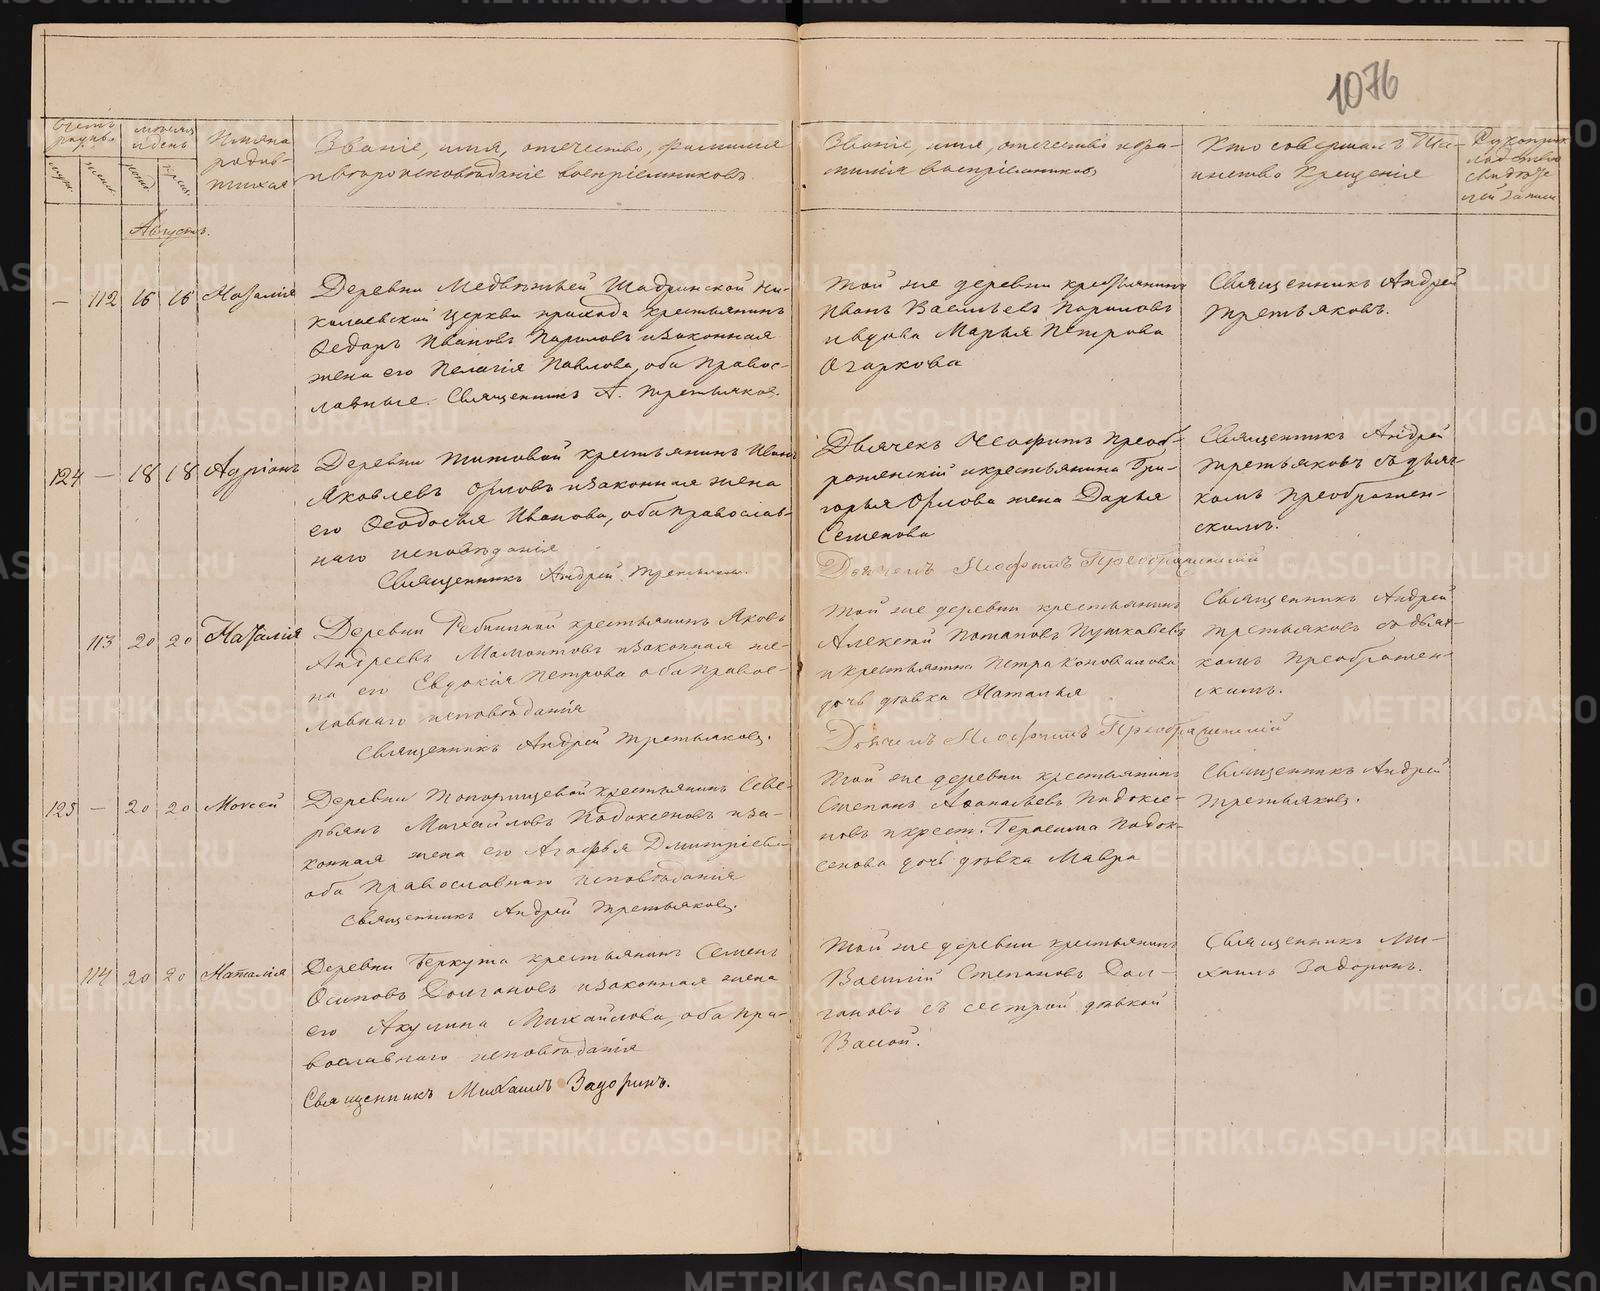 1076
Счетъ родив.
Мѣсяцъ и день
Имена родив-
шихся
Званіе, имя, отечество, фамилія
и вѣроисповѣданіе воспріемниковъ.
Званіе, имя, отечество и фа-
милія воспріемниковъ
Кто совершалъ Та-
инство Крещенія
Рукоприк
ладство
свидѣте
лей записи
Августъ.
— 112 16 16 Наталія
Деревни Медвѣжьей Шадринской Ни-
колаевской церкви прихода крестьянинъ
Ѳедоръ Ивановъ Париловъ и законная
жена его Пелагія Павлова, оба правос-
лавные. Священникъ А. Третьяковъ.
Той же деревни крестьянинъ
Иванъ Васильевъ Париловъ
и вдова Марья Петрова
Огаркова
Священникъ Андрей
Третьяковъ.
124 — 18 18 Адріанъ
Деревни Титовой крестьянинъ Иванъ
Яковлевъ Орловъ и законная жена
его Ѳеодосья Иванова, оба православ-
наго исповѣданія
Священникъ Андрей Третьяковъ.
Дьячекъ Неофитъ Преоб-
раженскій и крестьянина Гри-
горья Орлова жена Дарья
Семенова
Дьячекъ Неофитъ Преображенскій
Священникъ Андрей
Третьяковъ съ дьяч-
комъ Преображен-
скимъ.
113 20 20 Наталія
Деревни Рябининой крестьянинъ Яковъ
Андреевъ Мамонтовъ и законная же-
на его Евдокія Петрова оба правос-
лавнаго исповѣданія
Священникъ Андрей Третьяковъ.
Той же деревни крестьянинъ
Алексѣй Потаповъ Пушкаревъ
и крестьянина Петра Коновалова
дочь дѣвка Наталья
Дьячекъ Неофитъ Преображенскій
Священникъ Андрей
Третьяковъ съ дьяч-
комъ Преображен-
скимъ.
125 — 20 20 Моѵсей
Деревни Топорищевой крестьянинъ Севе-
рьянъ Михайловъ Подоксеновъ и за-
конная жена его Агафья Дмитріева
оба православнаго исповѣданія
Священникъ Андрей Третьяковъ.
Той же деревни крестьянинъ
Степанъ Аѳанасьевъ Подоксе-
новъ и крест. Герасима Подок-
сенова дочь дѣвка Мавра
Священникъ Андрей
Третьяковъ.
114 20 20 Наталія
Деревни Беркута крестьянинъ Семенъ
Осиповъ Долгановъ и законная жена
его Акулина Михайлова, оба пра-
вославнаго исповѣданія
Священникъ Михаилъ Задоринъ.
Той же деревни крестьянинъ
Василій Степановъ Дол-
гановъ съ сестрой дѣвкой
Васой.
Священникъ Ми-
хаилъ Задоринъ.
METRIKI.GASO-URAL.RU